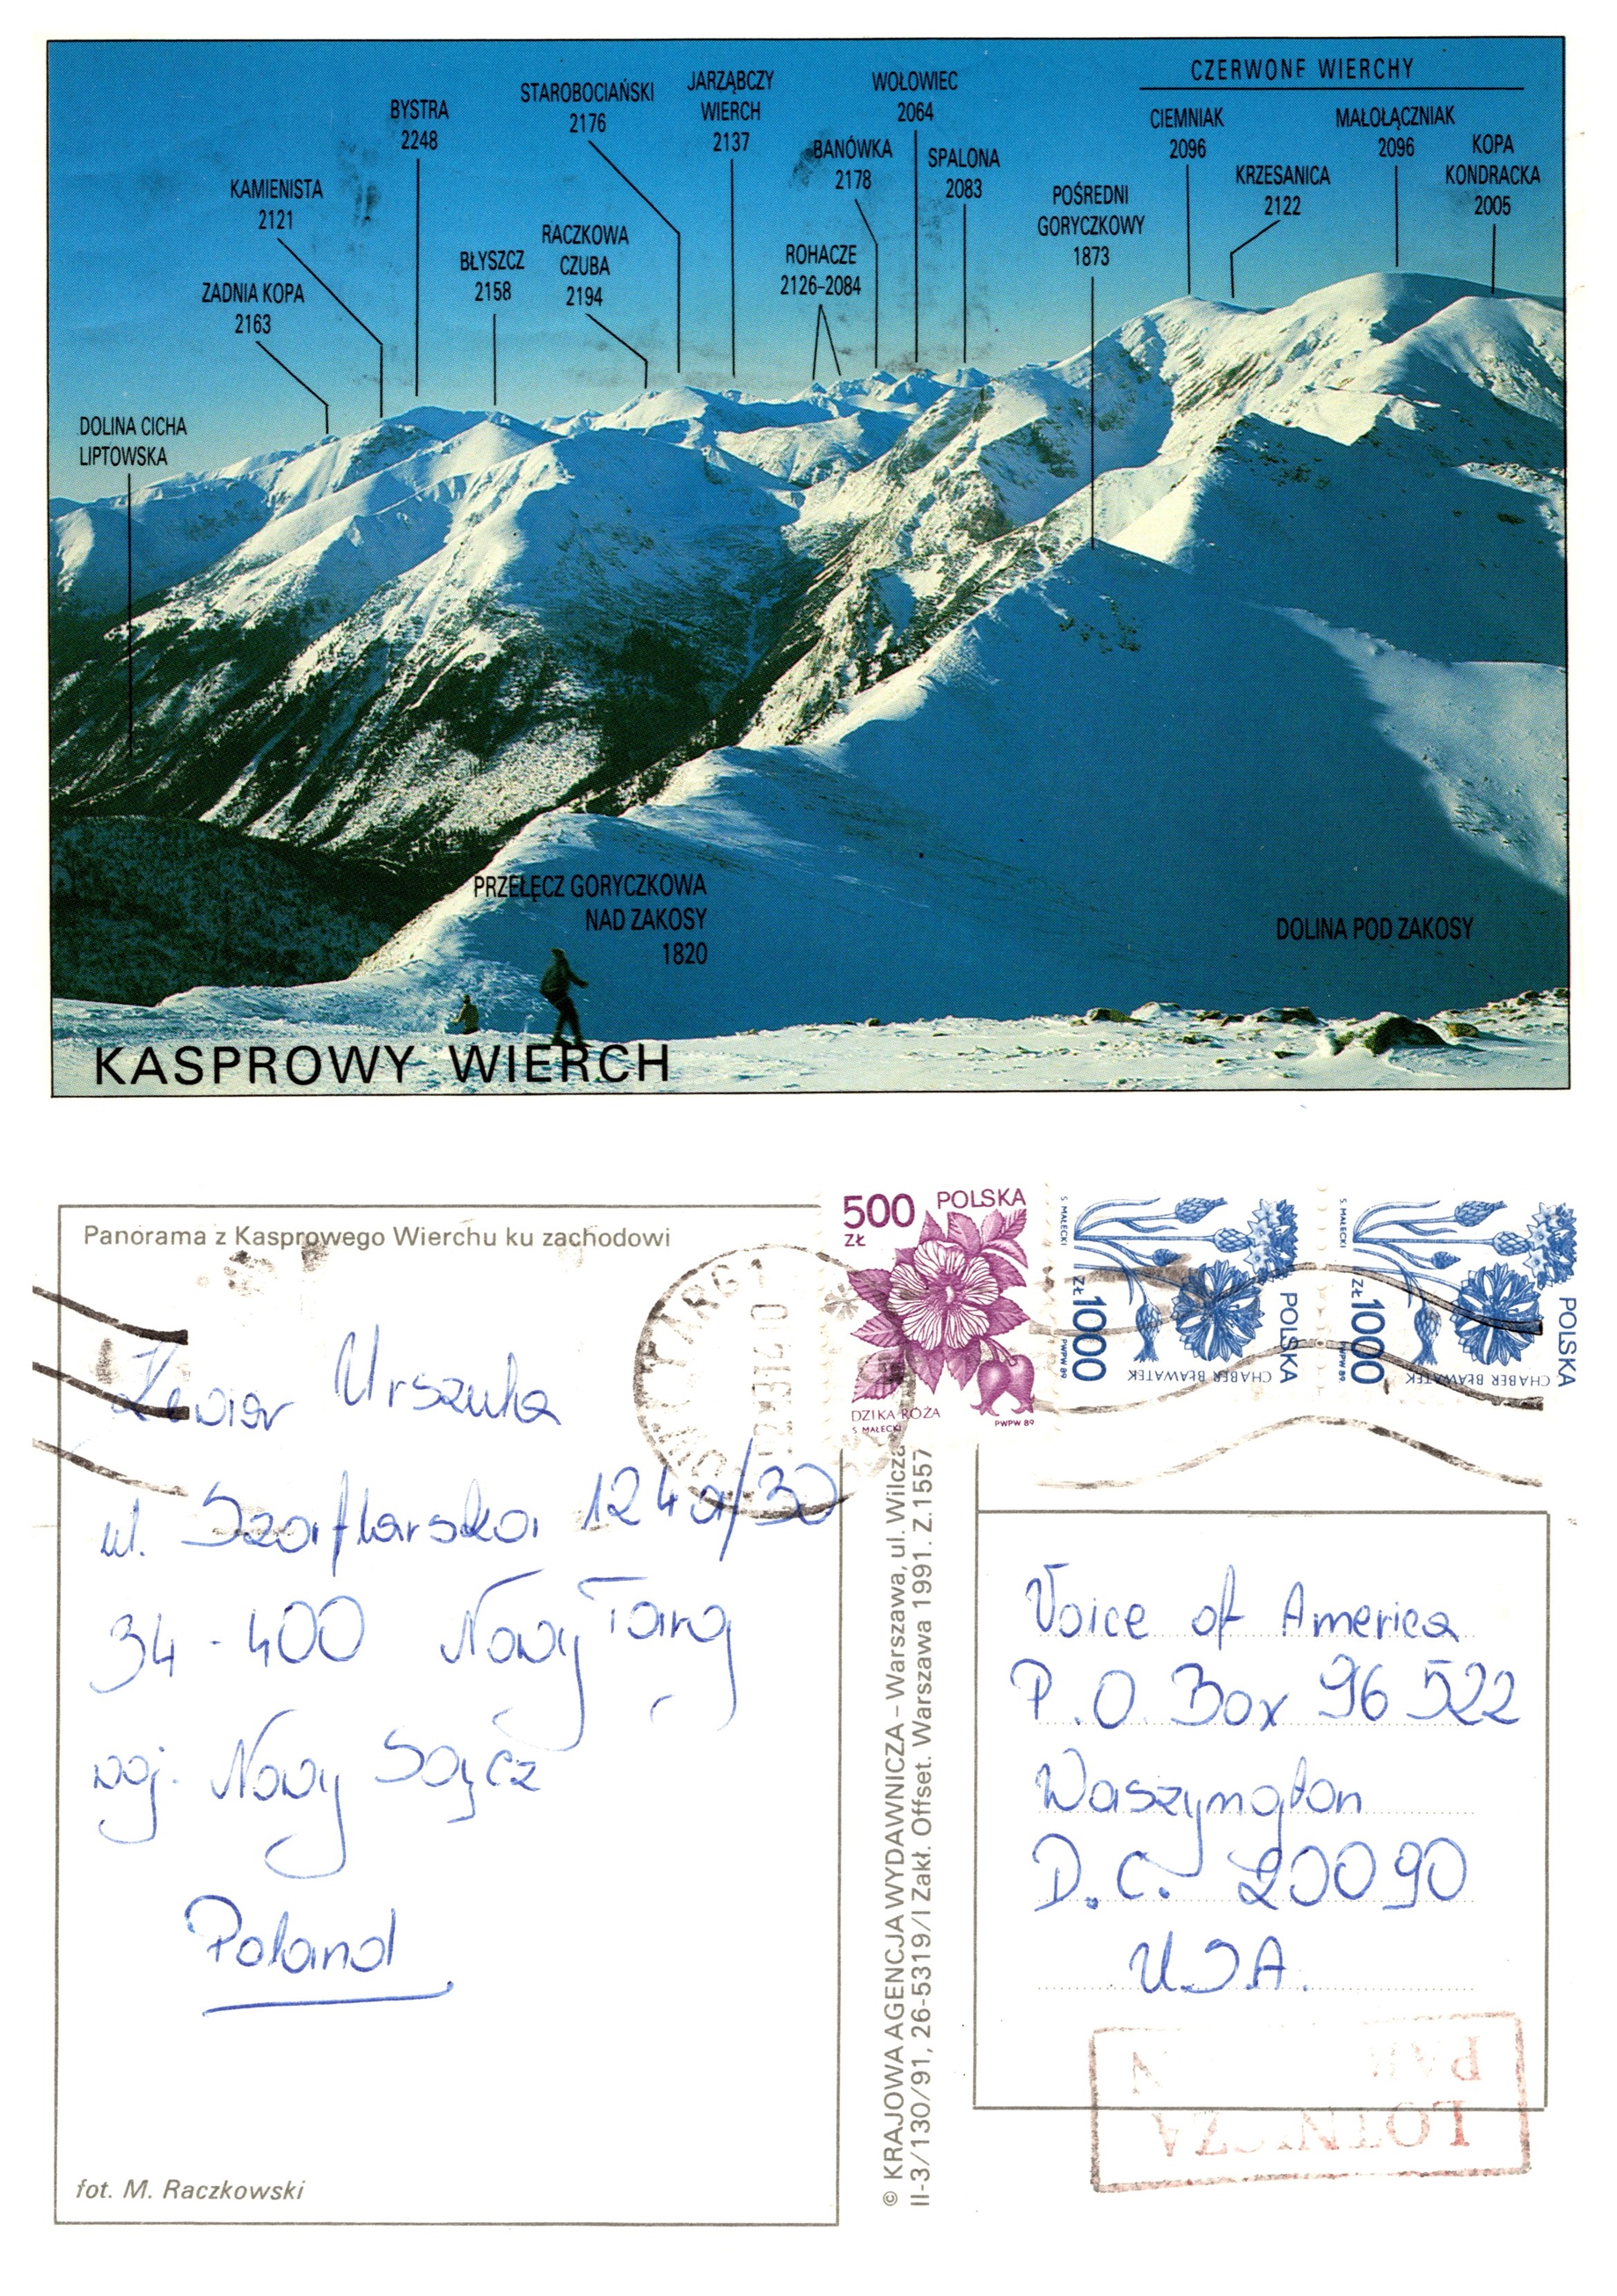 CZERWONE WIERCHY
STAROBOCIAŃSKI
2176
JARZĄBCZY
WIERCH
2137
WOŁOWIEC
2064
BYSTRA
2248
BANÓWKA
2178
SPALONA
2083
CIEMNIAK
2096
MAŁOŁĄCZNIAK
2096
KOPA
KONDRACKA
2005
KRZESANICA
2122
KAMIENISTA
2121
POŚREDNI
GORYCZKOWY
1873
RACZKOWA
CZUBA
2194
BŁYSZCZ
2158
ROHACZE
2126-2084
ZADNIA KOPA
2163
DOLINA CICHA
LIPTOWSKA
PRZEŁĘCZ GORYCZKOWA
NAD ZAKOSY
1820
DOLINA POD ZAKOSY
KASPROWY WIERCH
Panorama z Kasprowego Wierchu ku zachodowi
500 POLSKA
ZŁ
DZIKA RÓŻA
S MAŁECKI
PWPW 89
S. MAŁECKI
ZŁ 1000
PWPW 89
CHABER BŁAWATEK
POLSKA
S. MAŁECKI
ZŁ 1000
PWPW 89
CHABER BŁAWATEK
POLSKA
Urszula
ul. Szaflarska 124a/30
34-400 Nowy Targ
woj. Nowy Sącz
Poland
fot. M. Raczkowski
© KRAJOWA AGENCJA WYDAWNICZA – Warszawa, ul. Wilcza
II-3/130/91, 26-5319/I Zakł. Offset. Warszawa 1991. Z.1557
Voice of America
P.O. Box 96 522
Waszyngton
D.C. 20090
U.S.A.
LOTNICZA
PAR N